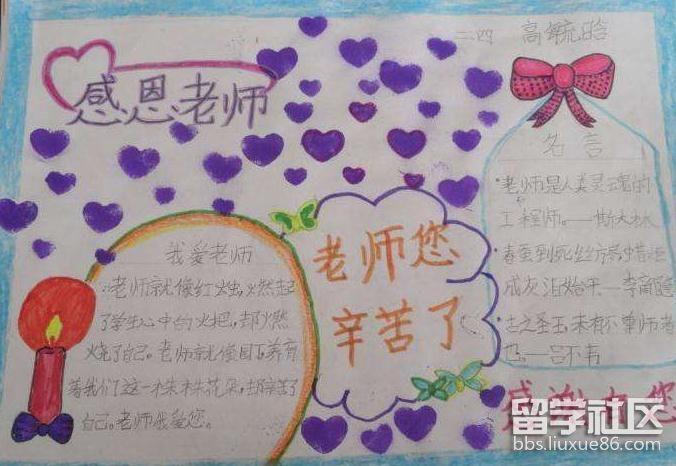 二四 高毓晗
感恩老师
我爱老师
老师就像红烛,燃起
了学生心中的火把,却燃
烧了自己。老师就像园丁,养育
着我们这一株株花朵,却辛苦了
自己。老师我爱您。
老师您
辛苦了
名言
·老师是人类灵魂的
工程师。——斯大林
·春蚕到死丝方尽,蜡炬
成灰泪始干——李商隐
·古之圣王,未有不尊师者
也,——吕不韦
留学社区
bbs.liuxue86.com